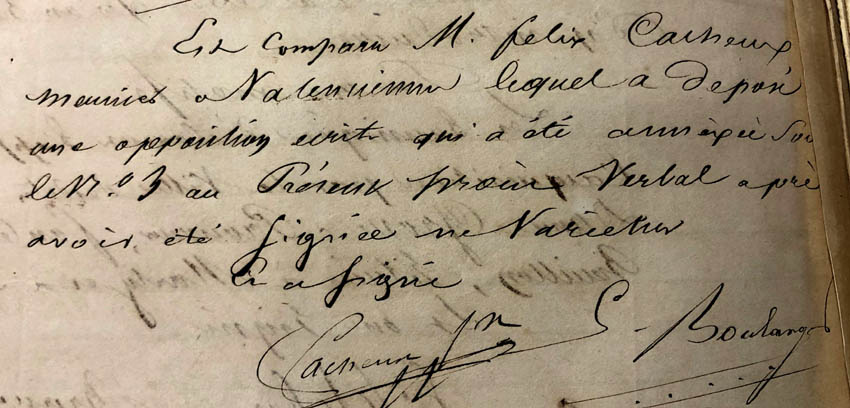 Est comparu M. felix Cacheux
meunier a Valenciennes lequel a deposé
une opposition ecrite qui a été annexée sou
le N.o 3 au Présent procès Verbal après
avoir été signée ne Varietur
Et a signé
Cacheux G Boulanger